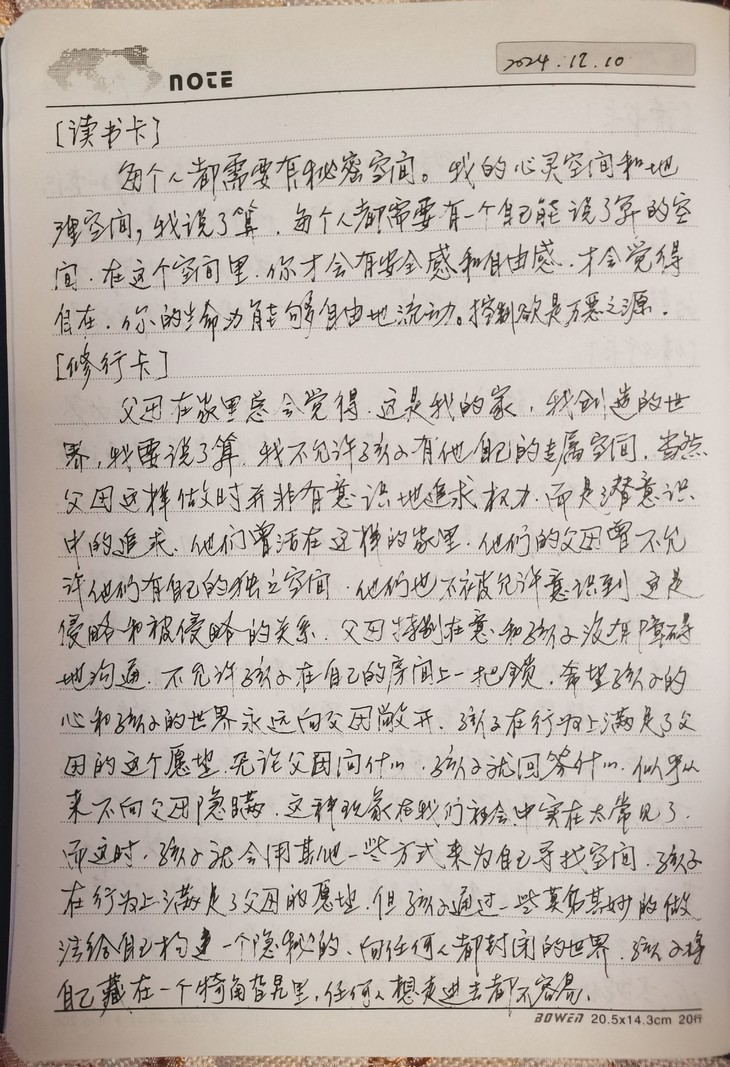 NOTE
2024.12.10
[读书卡]
每个人都需要有秘密空间。我的心灵空间和地
理空间，我说了算．每个人都需要有一个自己能说了算的空
间．在这个空间里．你才会有安全感和自由感．才会觉得
自在．你的生命力能够自由地流动。控制欲是万恶之源．
[修行卡]
父母在家里总会觉得．这是我的家，我创造的世
界，我要说了算．我不允许孩子有他自己的专属空间．当然
父母这样做时并非有意识地追求权力．而是潜意识
中的追求．他们曾活在这样的家里．他们的父母曾不允
许他们有自己的独立空间．他们也不被允许意识到这是
侵略和被侵略的关系．父母特别在意和孩子没有障碍
地沟通．不允许孩子在自己的房间上一把锁．希望孩子的
心和孩子的世界永远向父母敞开．孩子在行为上满足了父
母的这个愿望．无论父母问什么．孩子就回答什么．似乎从
来不向父母隐瞒．这种现象在我们社会中实在太常见了．
而这时．孩子就会用其他一些方式来为自己寻找空间．孩子
在行为上满足了父母的愿望．但孩子通过一些莫名其妙的做
法给自己构造一个隐秘的、向任何人都封闭的世界．孩子将
自己藏在一个犄角旮旯里，任何人想走进去都不容易．
BOWEN 20.5x14.3cm 20行